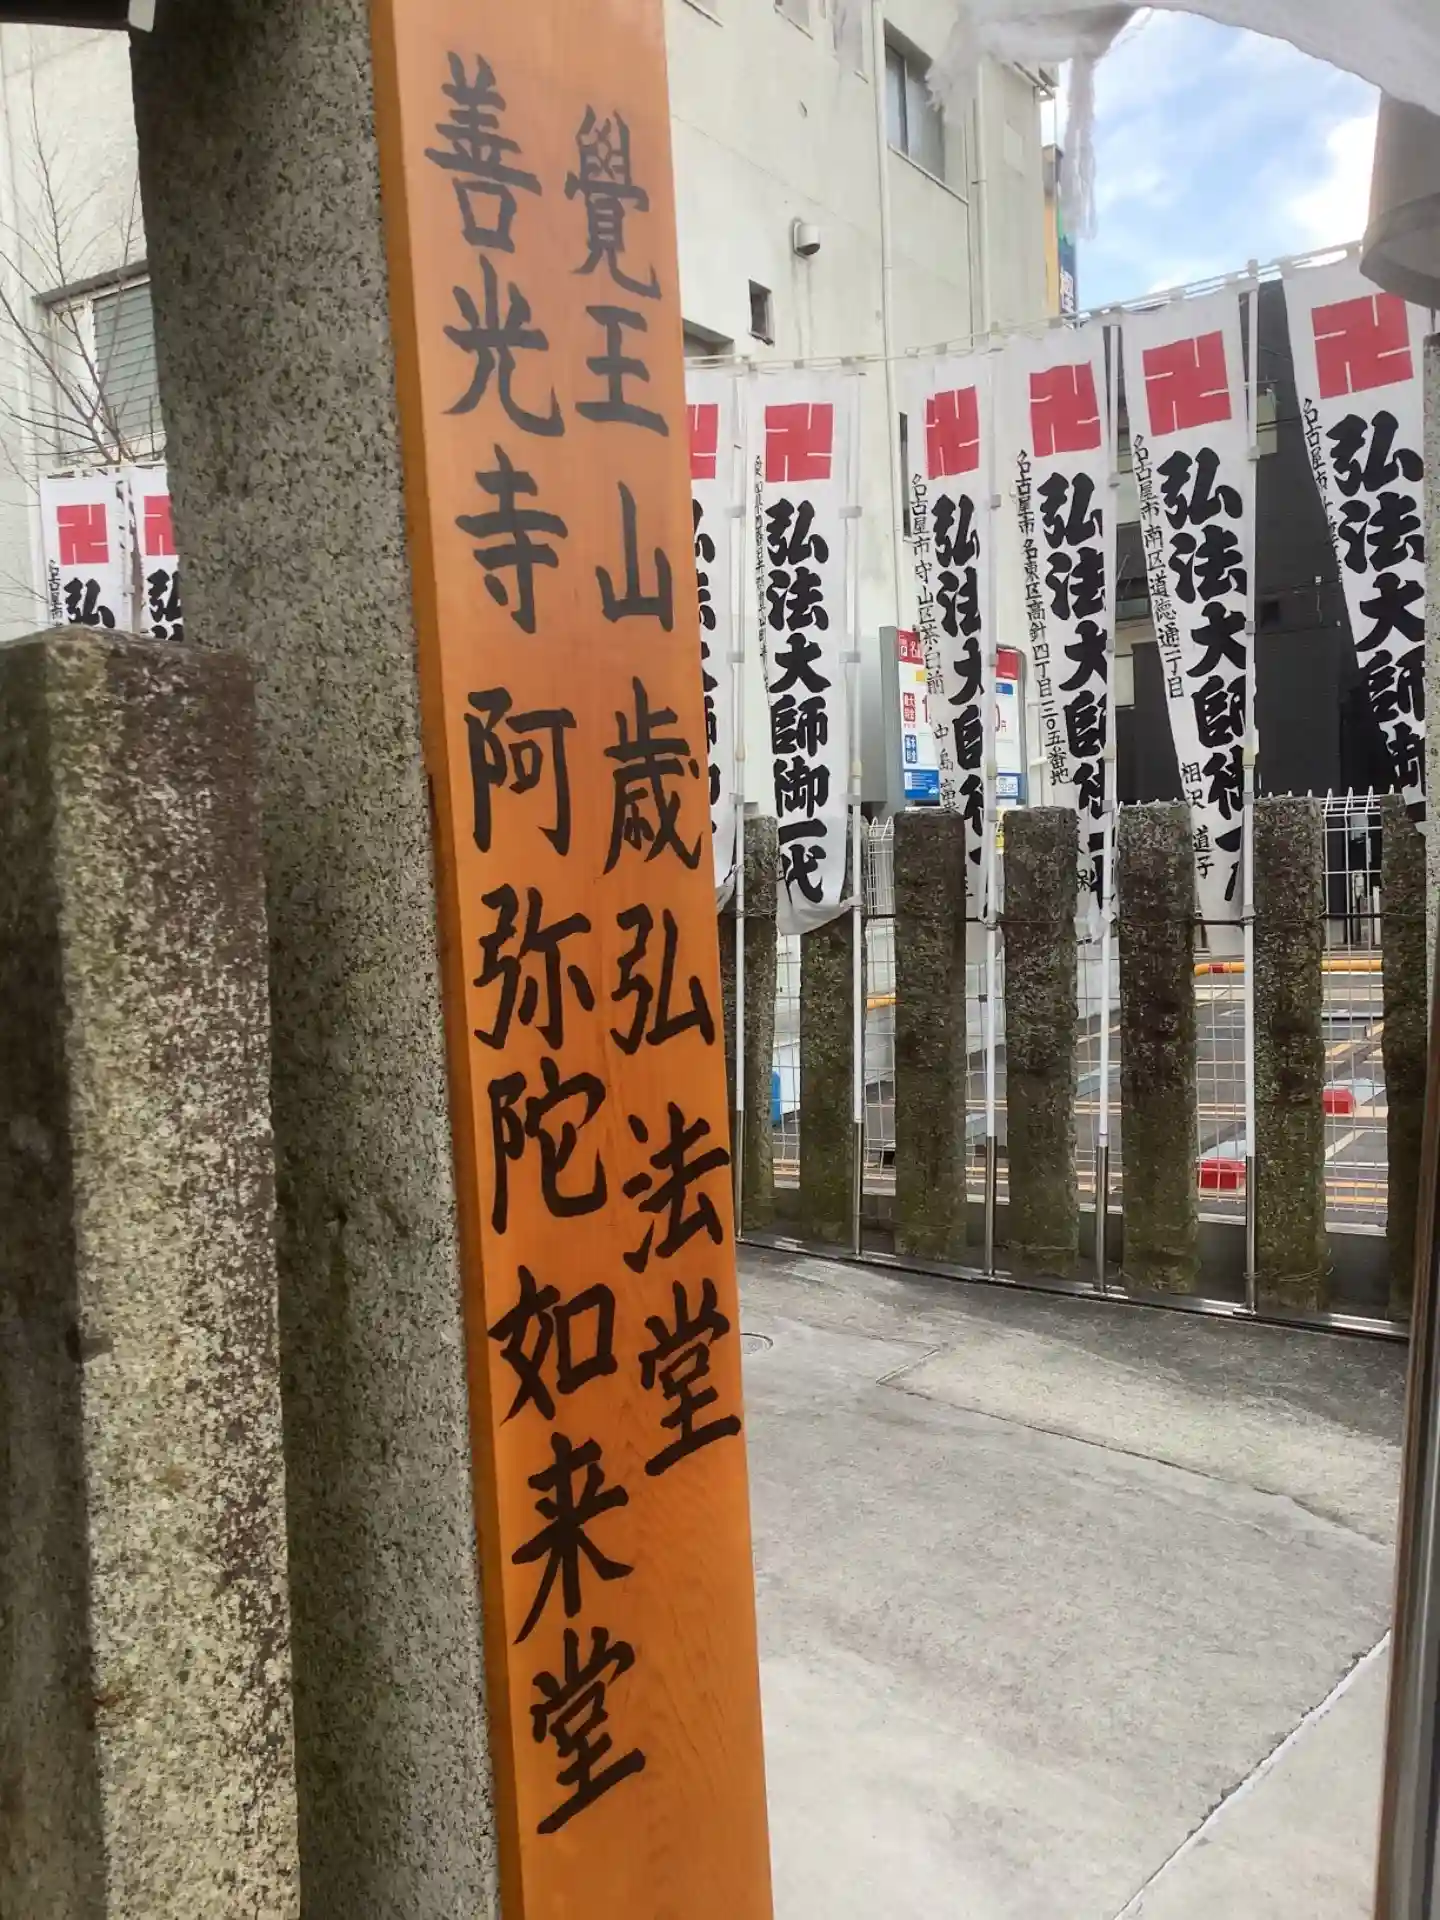 覺王山歳弘法堂
善光寺阿弥陀如来堂
卍
弘法大師御
名古屋市
卍
弘法大師御
名古屋市南区道徳通二丁目
相沢道子
卍
弘法大師
名古屋市名東区高針四丁目三〇五番地
卍
弘法大師
名古屋市守山区茶臼前
中島
卍
弘法大師御一代
卍
卍
弘
卍
弘
名古屋市